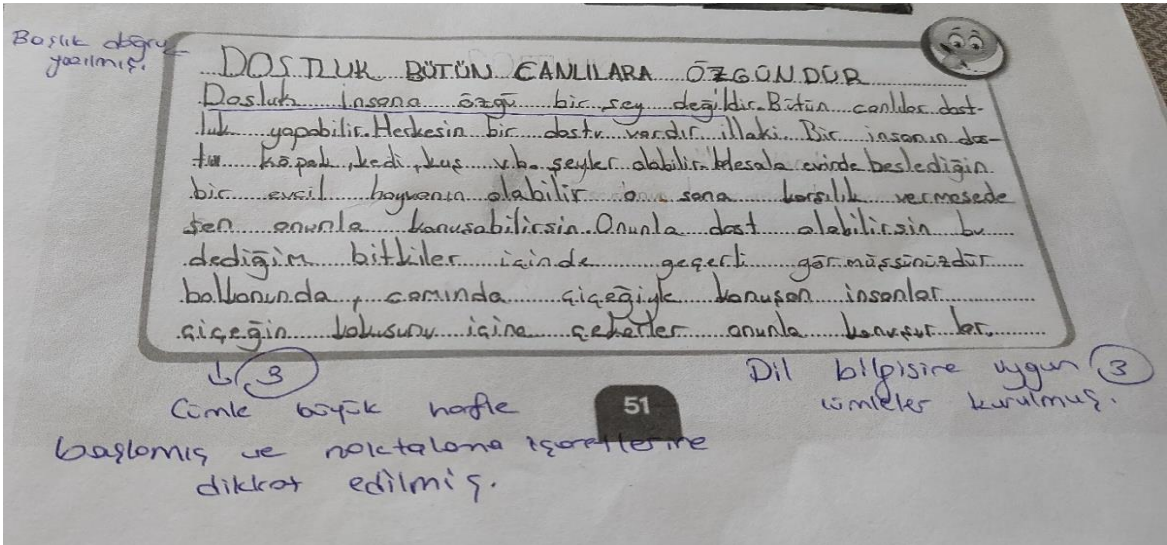 Başlık doğru
yazılmış.
DOSTLUK BÜTÜN CANLILARA ÖZGÜNDÜR
Dosluk insana özgü bir şey değildir. Bütün canlılar dost-
luk yapabilir. Herkesin bir dostu vardır illaki. Bir insanın dos-
tu köpek, kedi, kuş v.b. şeyler olabilir. Mesala evinde beslediğin
bir evcil hayvanın olabilir o sana karşılık vermesede
sen onunla konuşabilirsin. Onunla dost olabilirsin bu
dediğim bitkiler içinde geçerli görmüşsünüzdür
balkonunda, camında çiçeğiyle konuşan insanlar
çiçeğin kokusunu içine çekerler onunla konuşur lar.
3
Cümle büyük harfle
başlamış ve noktalama işaretlerine
dikkat edilmiş.
Dil bilgisine uygun 3
cümleler kurulmuş.
51